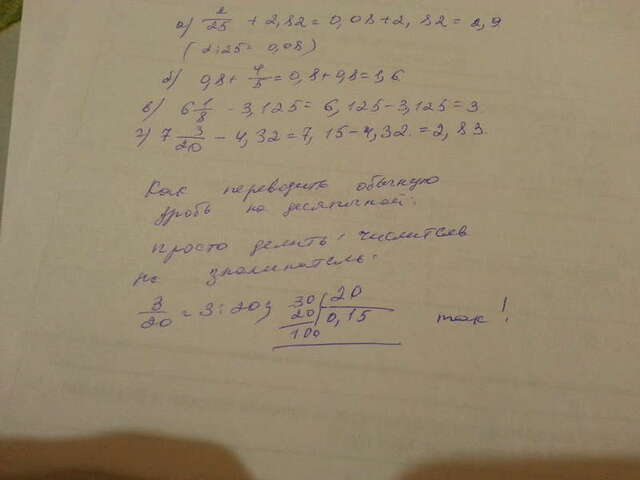 а) 2/25 + 2,82 = 0,08 + 2,82 = 2,9
(2:25 = 0,08)
б) 0,8 + 4/5 = 0,8 + 0,8 = 1,6
в) 6 1/8 - 3,125 = 6,125 - 3,125 = 3
г) 7 3/20 - 4,32 = 7,15 - 4,32 = 2,83
Как переводить обычную
дробь на десятичной:
просто делить: числитель
на знаменатель.
3/20 = 3:20; 30 20
20 0,15 так!
100